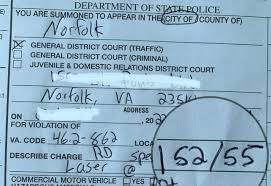 DEPARTMENT OF STATE POLICE
YOU ARE SUMMONED TO APPEAR IN THE (CITY OF/ COUNTY OF)
Norfolk
GENERAL DISTRICT COURT (TRAFFIC)
GENERAL DISTRICT COURT (CRIMINAL)
JUVENILE & DOMESTIC RELATIONS DISTRICT COURT
Norfolk, VA
ADDRESS
FOR VIOLATION OF
VA. CODE 46.2-862
DESCRIBE CHARGE RD
Laser @
152/55
COMMERCIAL MOTOR VEHICLE YES